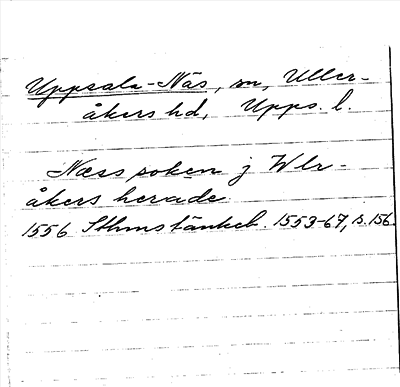 Uppsala-Näs, sn, Uller-
åkers hd, Upps. l.
Næss soken j Wlr-
åkers herade
1556 Sthms tänkeb. 1553-67, s. 156